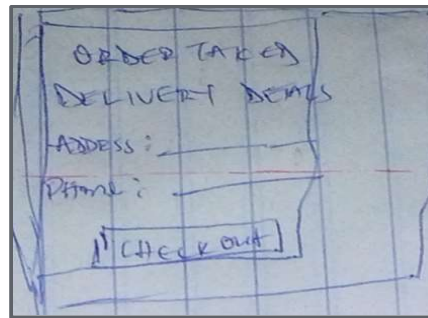 ORDER TAKED
DELIVERY DETAILS
ADDRESS:
Phone:
CHECKOUT